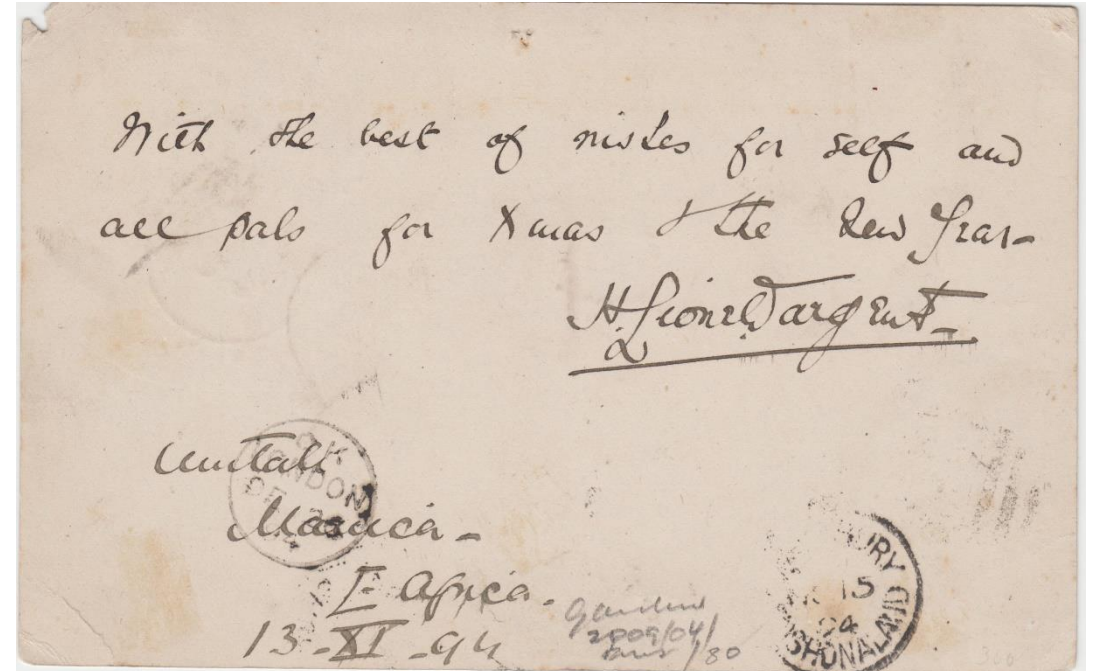 With the best of wishes for self and
all pals for Xmas & the New Year -
H. Lionel Sargent -
Umtali
Manica -
E. Africa.
13 - XI - 94
LONDON
DE
SHONALAND
15
94
2009/04/
/80